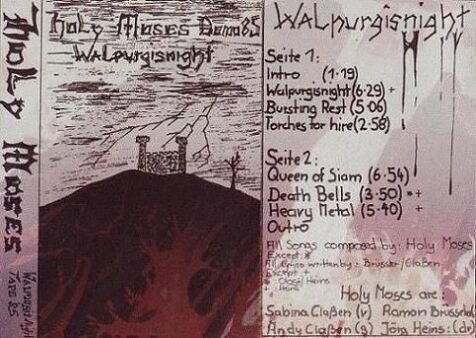 Holy Moses
Walpurgisnight
Tape 85
Holy Moses Demo 85
Walpurgisnight
Walpurgisnight
Seite 1:
Intro (1·19)
Walpurgisnight (6·29) +
Bursting Rest (5·06)
Torches for hire (2·58)
Seite 2:
Queen of Siam (6·54)
Death Bells (3·50) *+
Heavy Metal (5·40) +
Outro
All Songs composed by: Holy Moses
Except *
All lyrics written by: Brüssler/Claßen
Except +
Heins
+ Heins
Holy Moses are:
Sabina Claßen (v) Ramon Brüssler
Andy Claßen (g) Jörg Heins: (dr)